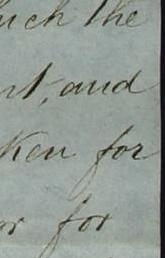 uch the
nt, and
ken for
or for